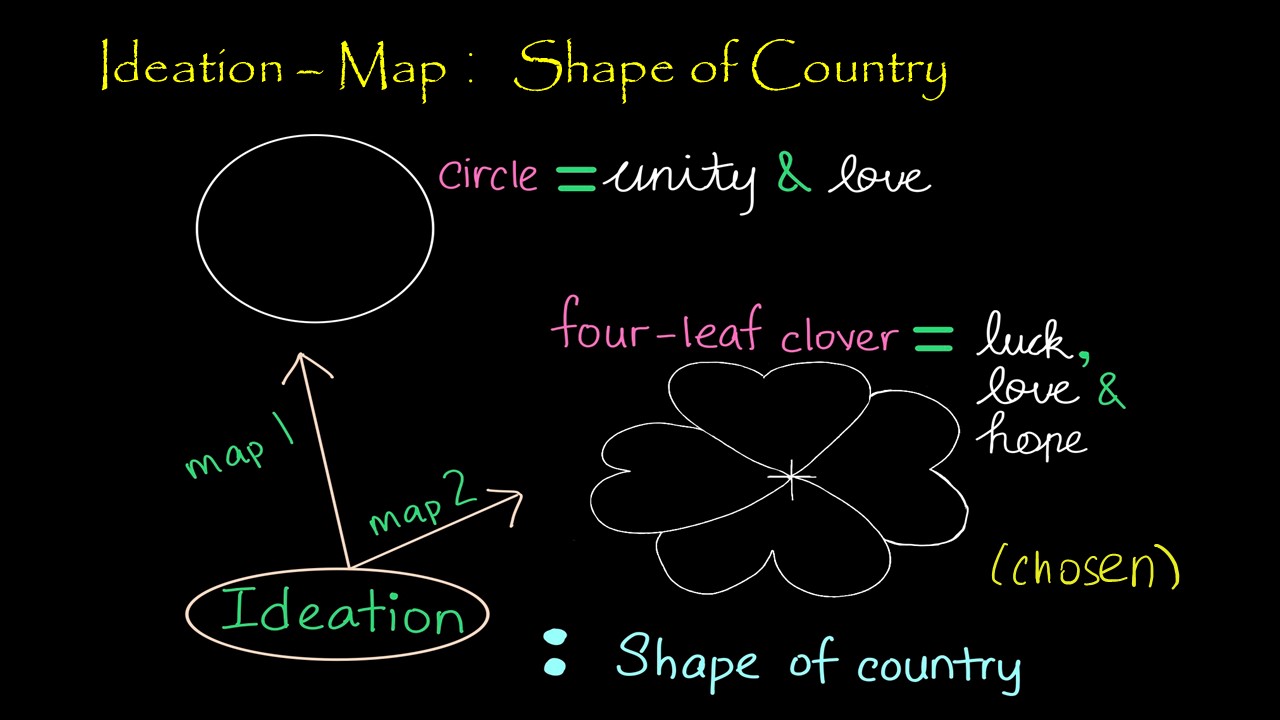 Ideation – Map : Shape of Country
circle = unity & love
four-leaf clover = luck,
love &
hope
map 1
map 2
(chosen)
Ideation
: Shape of country